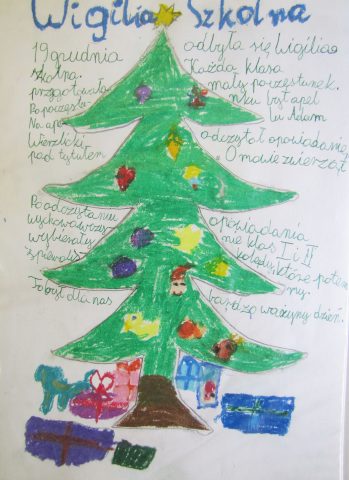 Wigilia Szkolna
19 grudnia odbyła się wigilia
szkolna. Każda klasa
przygotowała mały poczęstunek.
Po poczęstu- nku był apel
Na ape- lu Adam
Wierzlicki odczytał opowiadanie
pod tytułem O mowie zwierząt
Po odczytaniu opowiadania
wychowawczy- nie klas I i II
wybierały kolędy, które potem
śpiewali
To był dla nas bardzo ważny dzień.